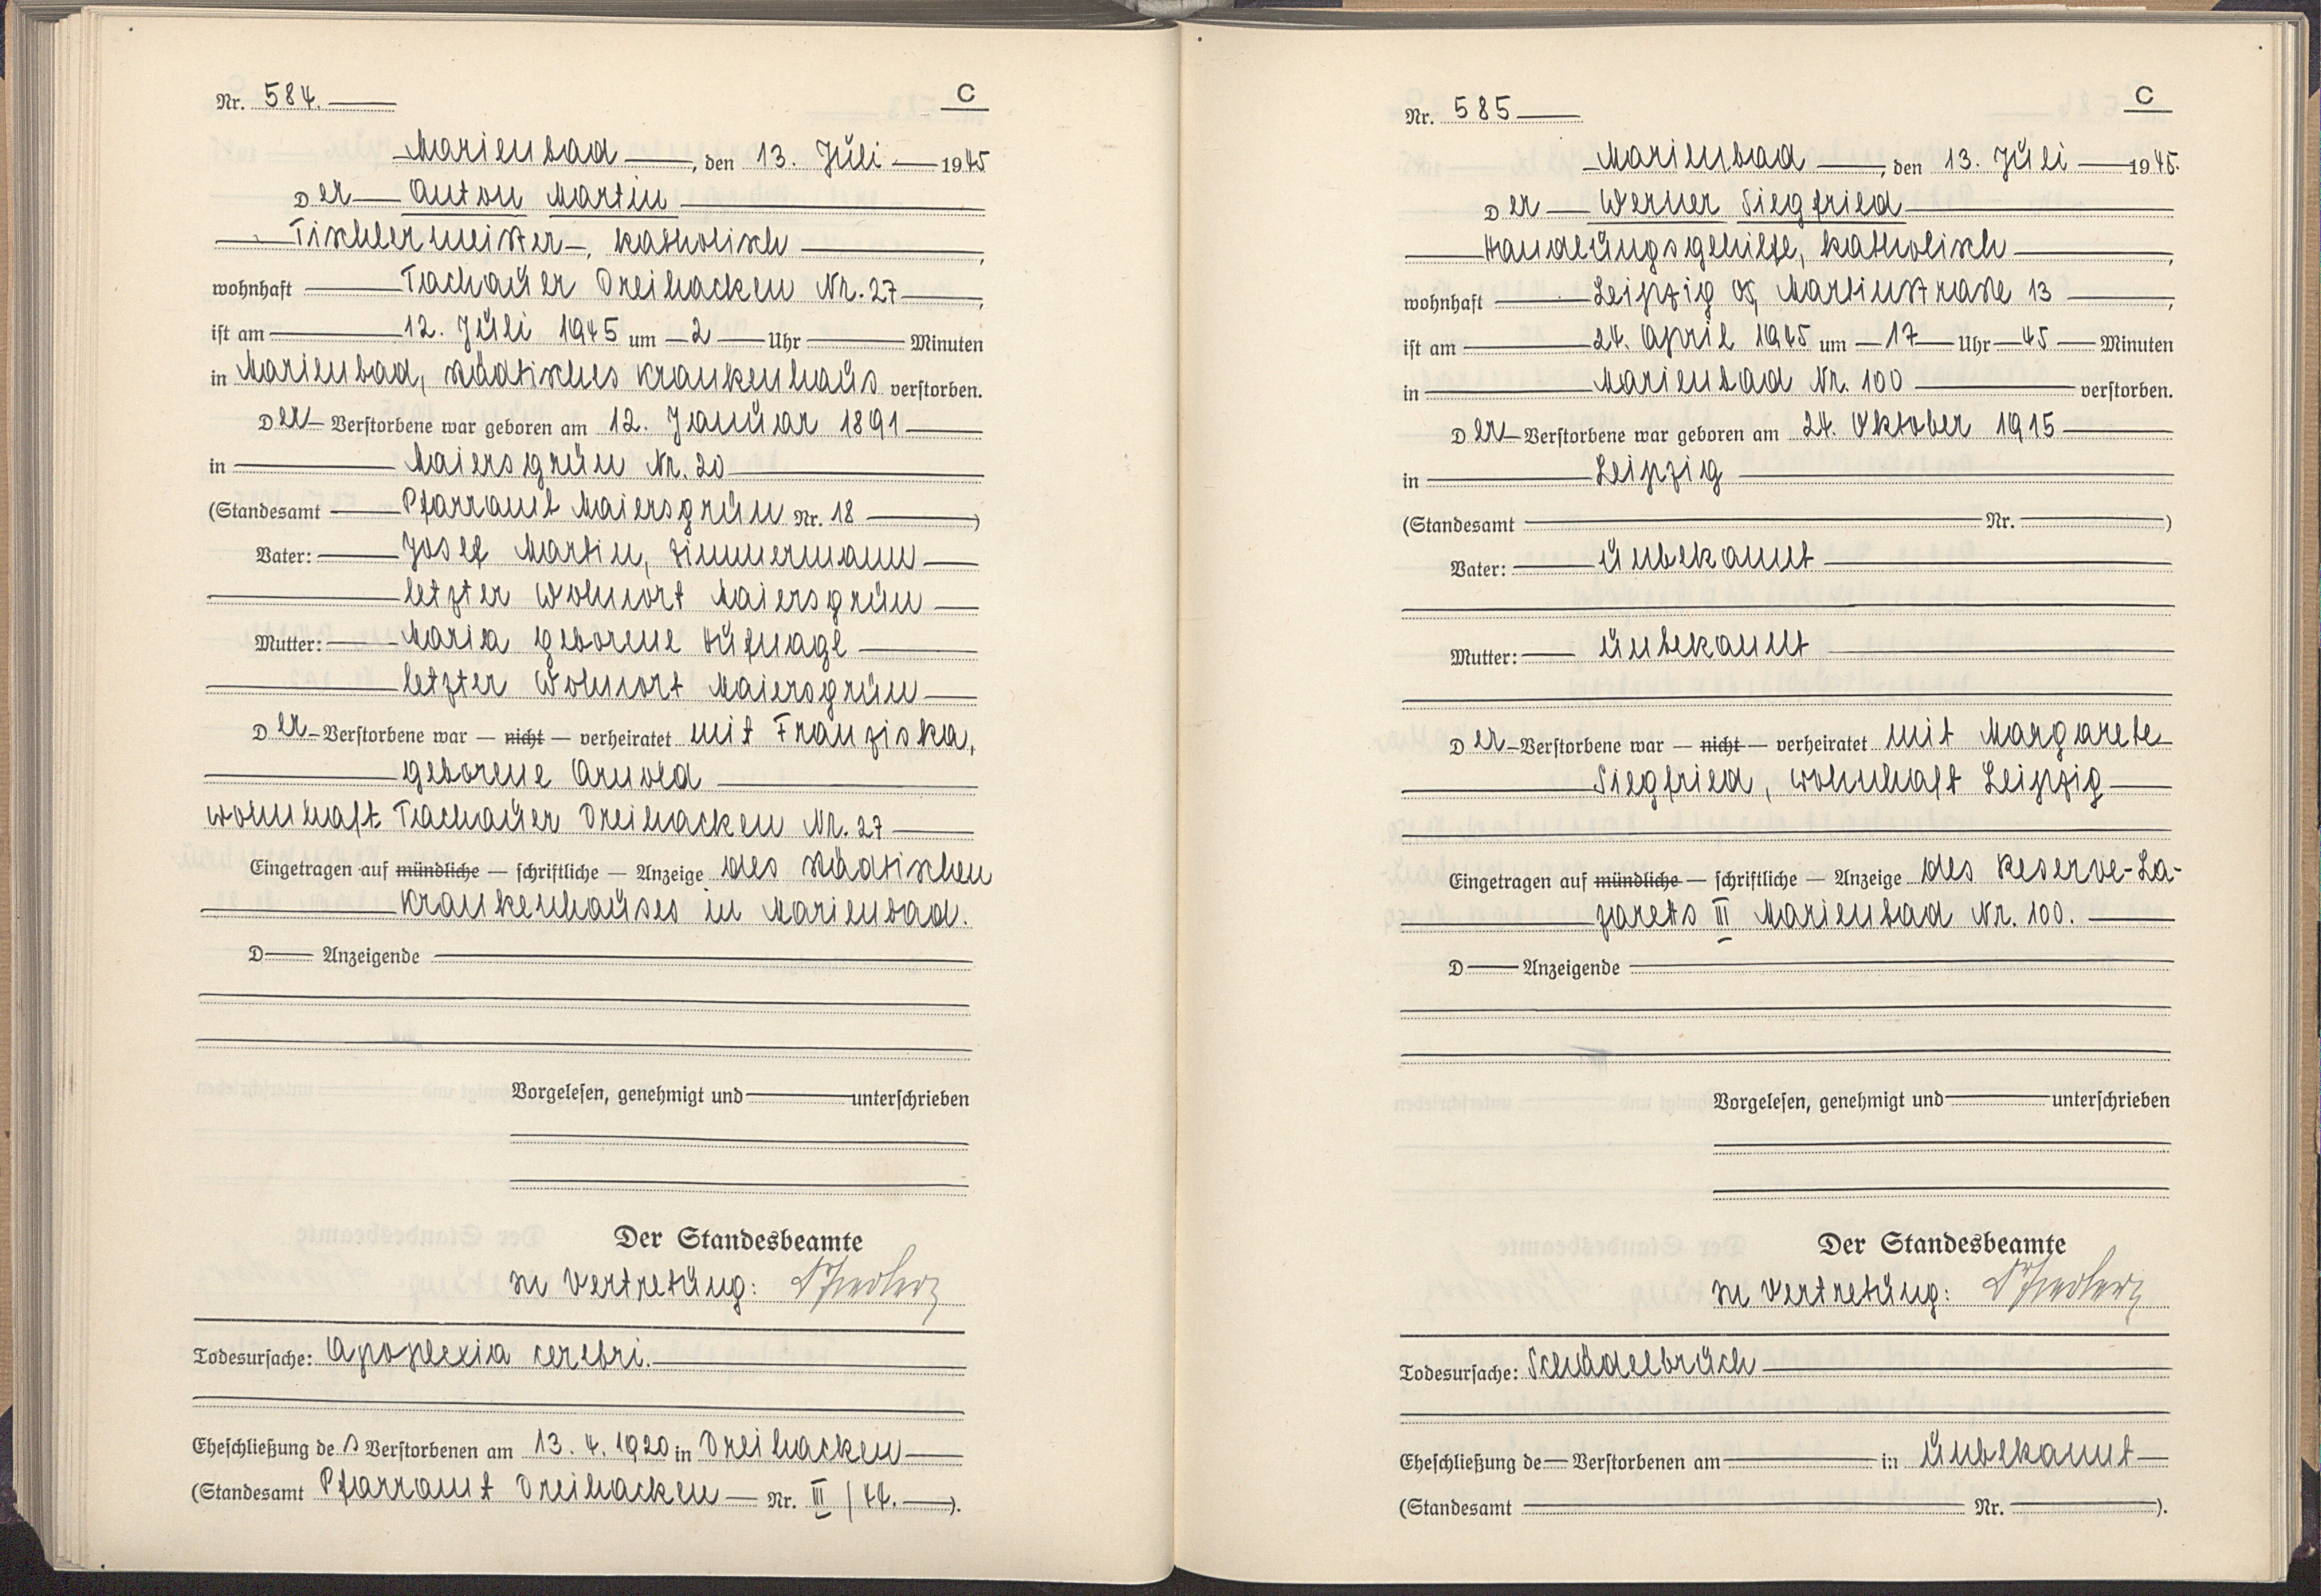 Nr. 584.
C
Marienbad, den 13. Juli 1945
Der Anton Martin
Tischlermeister, katholisch,
wohnhaft Tachauer Dreihacken Nr. 27,
ist am 12. Juli 1945 um 2 Uhr Minuten
in Marienbad, städtisches Krankenhaus verstorben.
Der Verstorbene war geboren am 12. Januar 1891
in Maiersgrün Nr. 20
(Standesamt Pfarramt Maiersgrün Nr. 18)
Vater: Josef Martin, Zimmermann
letzter Wohnort Maiersgrün
Mutter: Maria geborene Hufnagl
letzter Wohnort Maiersgrün
Der Verstorbene war — nicht — verheiratet mit Franziska,
geborene Arnold
wohnhaft Tachauer Dreihacken Nr. 27
Eingetragen auf mündliche — schriftliche — Anzeige des städtischen
Krankenhauses in Marienbad.
D Anzeigende
Vorgelesen, genehmigt und unterschrieben
Der Standesbeamte
In Vertretung:
Todesursache: Apoplexia cerebri.
Eheschließung des Verstorbenen am 13. 4. 1920 in Dreihacken
(Standesamt Pfarramt Dreihacken Nr. III / 44.).
Nr. 585
C
Marienbad, den 13. Juli 1945.
Der Werner Siegfried
Handlungsgehilfe, katholisch,
wohnhaft Leipzig Martinstraße 13,
ist am 24. April 1945 um 17 Uhr 45 Minuten
in Marienbad Nr. 100 verstorben.
Der Verstorbene war geboren am 24. Oktober 1915
in Leipzig
(Standesamt Nr. )
Vater: unbekannt
Mutter: unbekannt
Der Verstorbene war — nicht — verheiratet mit Margarete
Siegfried, wohnhaft Leipzig
Eingetragen auf mündliche — schriftliche — Anzeige des Reserve-La-
zaretts III Marienbad Nr. 100.
D Anzeigende
Vorgelesen, genehmigt und unterschrieben
Der Standesbeamte
In Vertretung:
Todesursache: Schädelbruch
Eheschließung de Verstorbenen am in unbekannt
(Standesamt Nr. ).